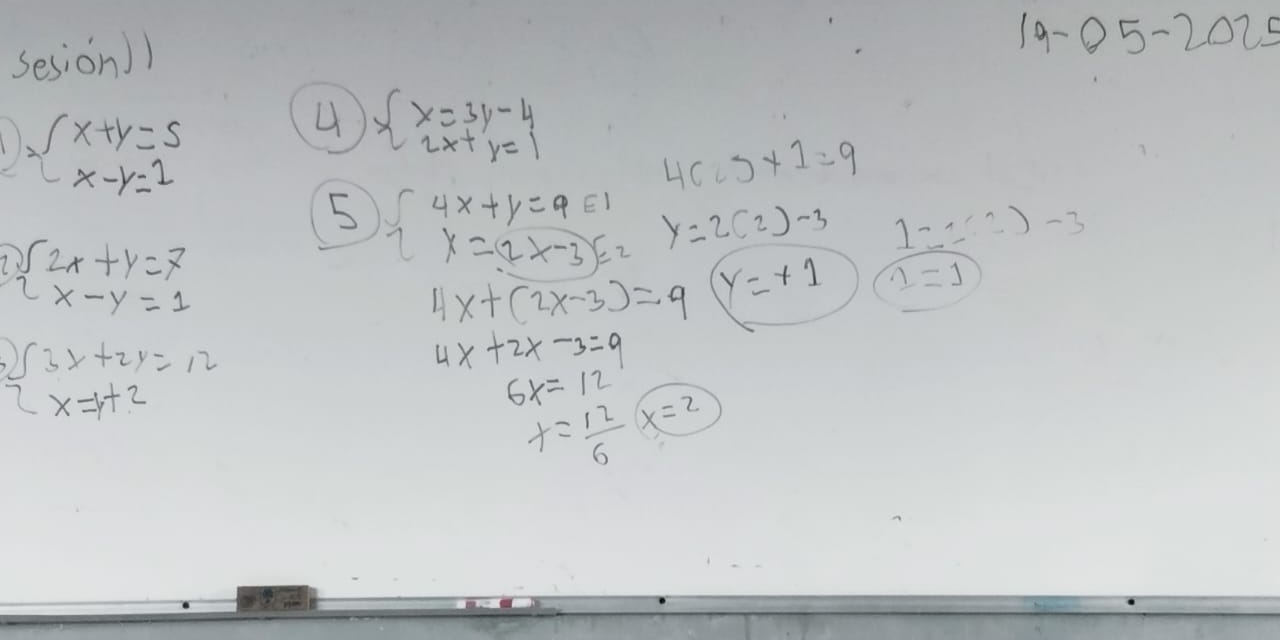 19-05-2025
sesión 11
1) { x+y=5
x-y=1
2) { 2x+y=7
x-y=1
3) { 3x+2y=12
x=y+2
4 { x=3y-4
2x+y=1
5 { 4x+y=9 E1
y=2x-3 E2
4x+(2x-3)=9
4x+2x-3=9
6x=12
x=12/6 x=2
4(2)+1=9
y=2(2)-3
y=+1
1=2(2)-3
1=1